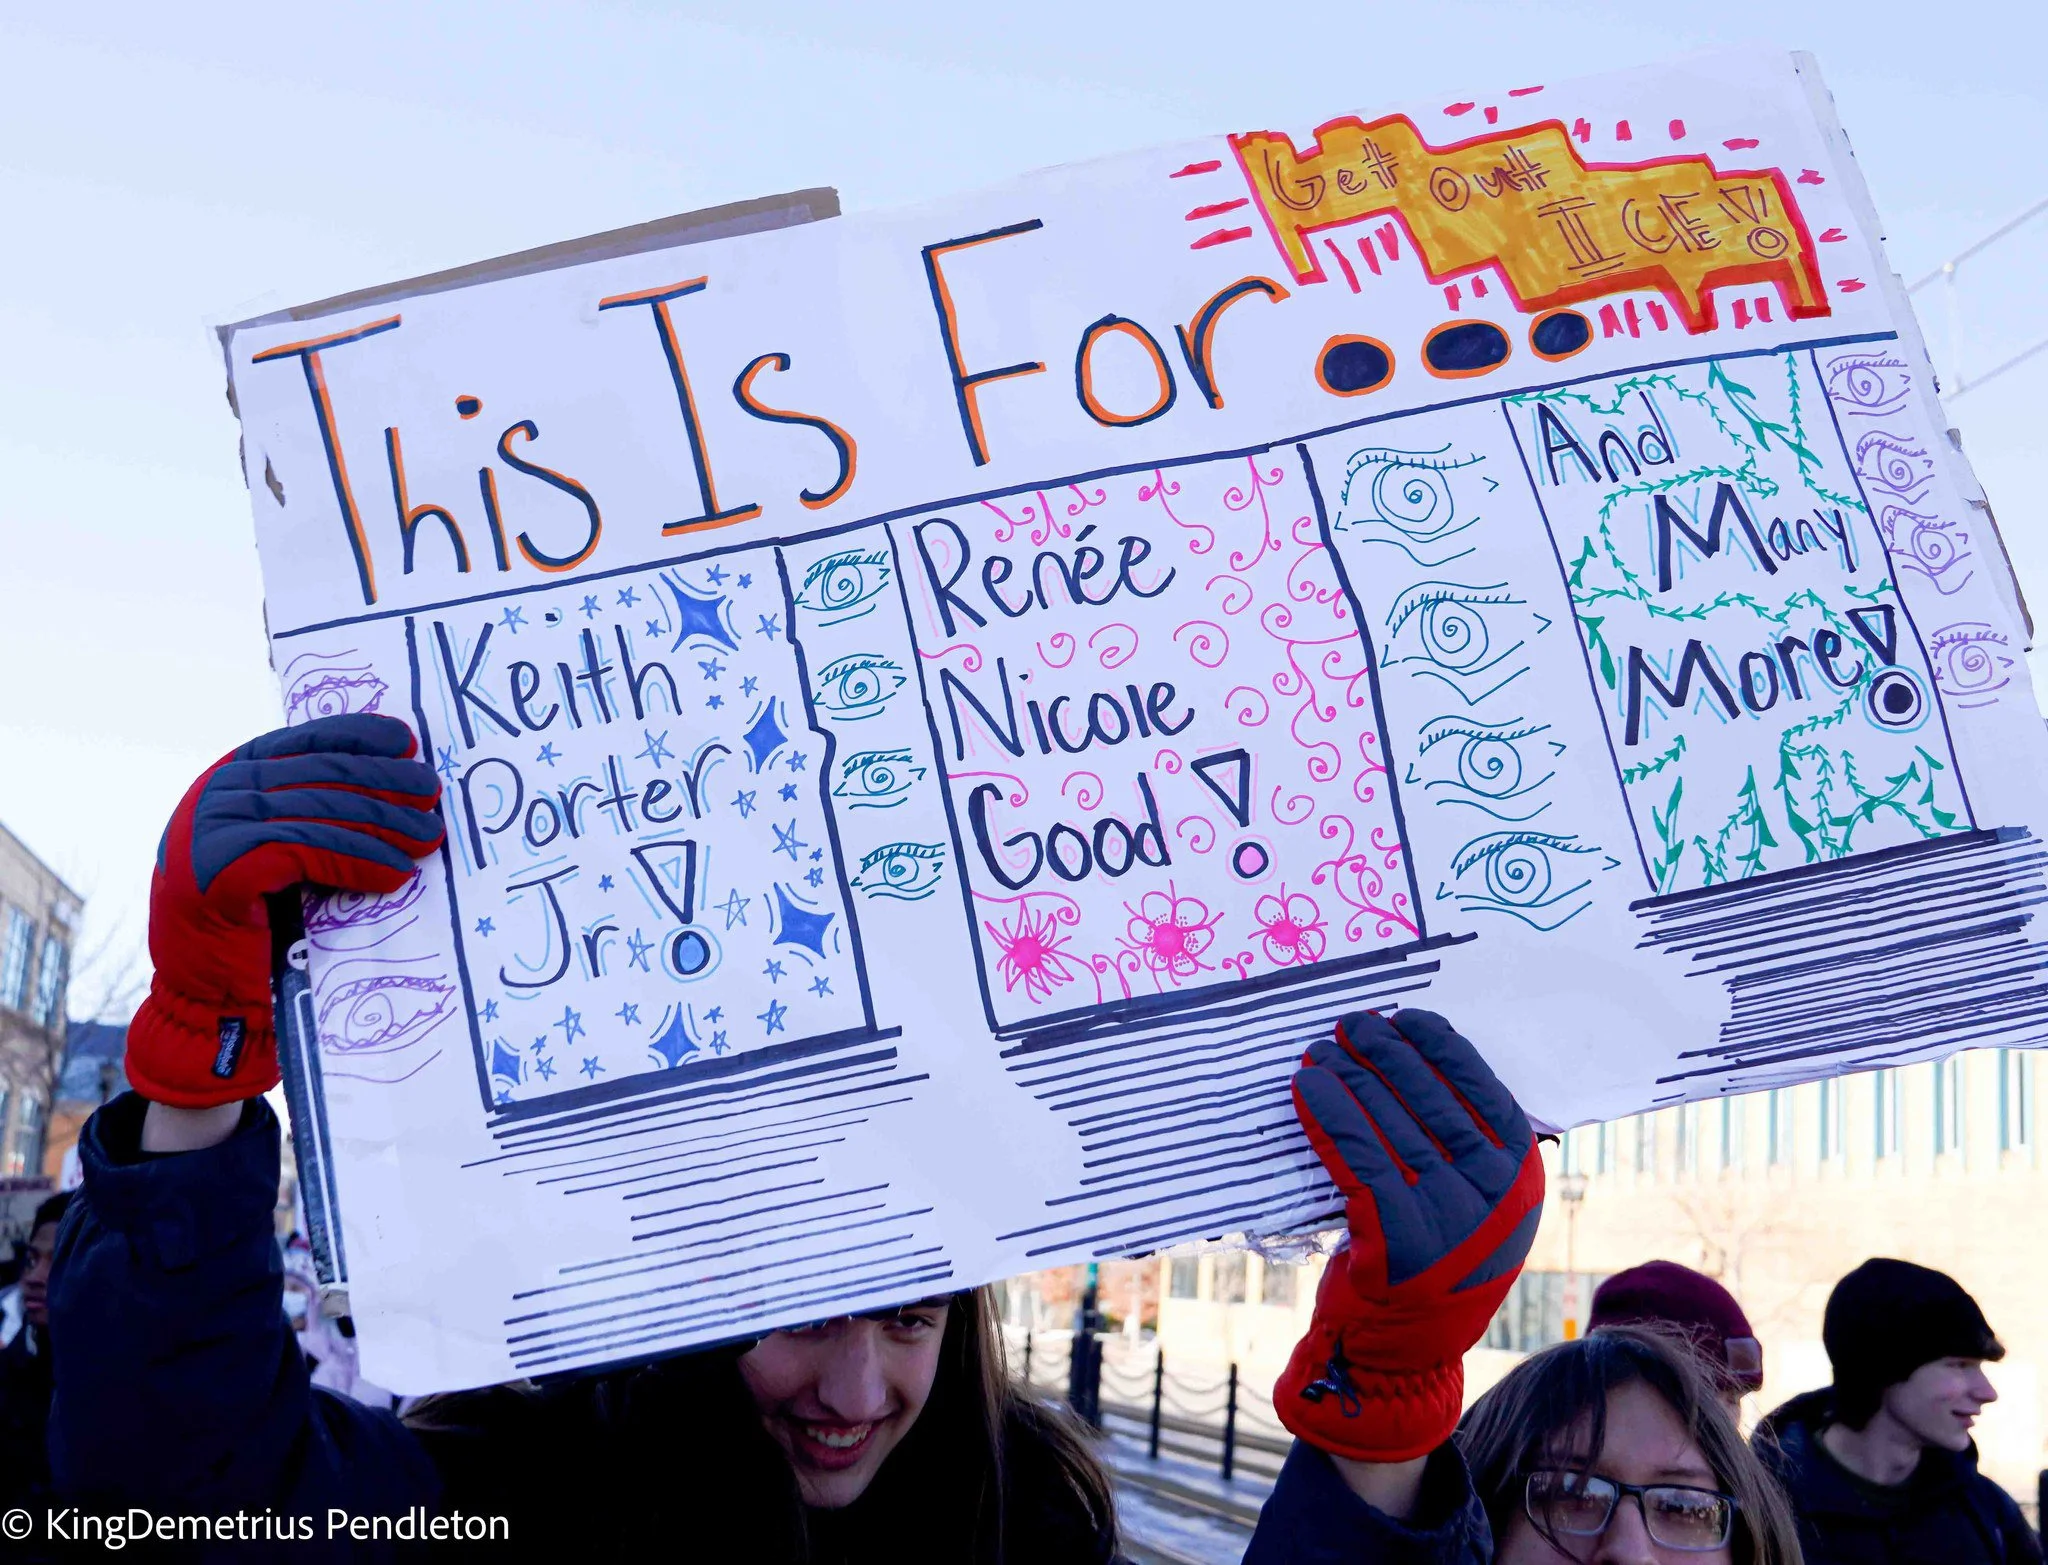 Get Out
ICE!
This Is For...
Keith
Porter
Jr!
Renée
Nicole
Good!
And
Many
More!
© KingDemetrius Pendleton